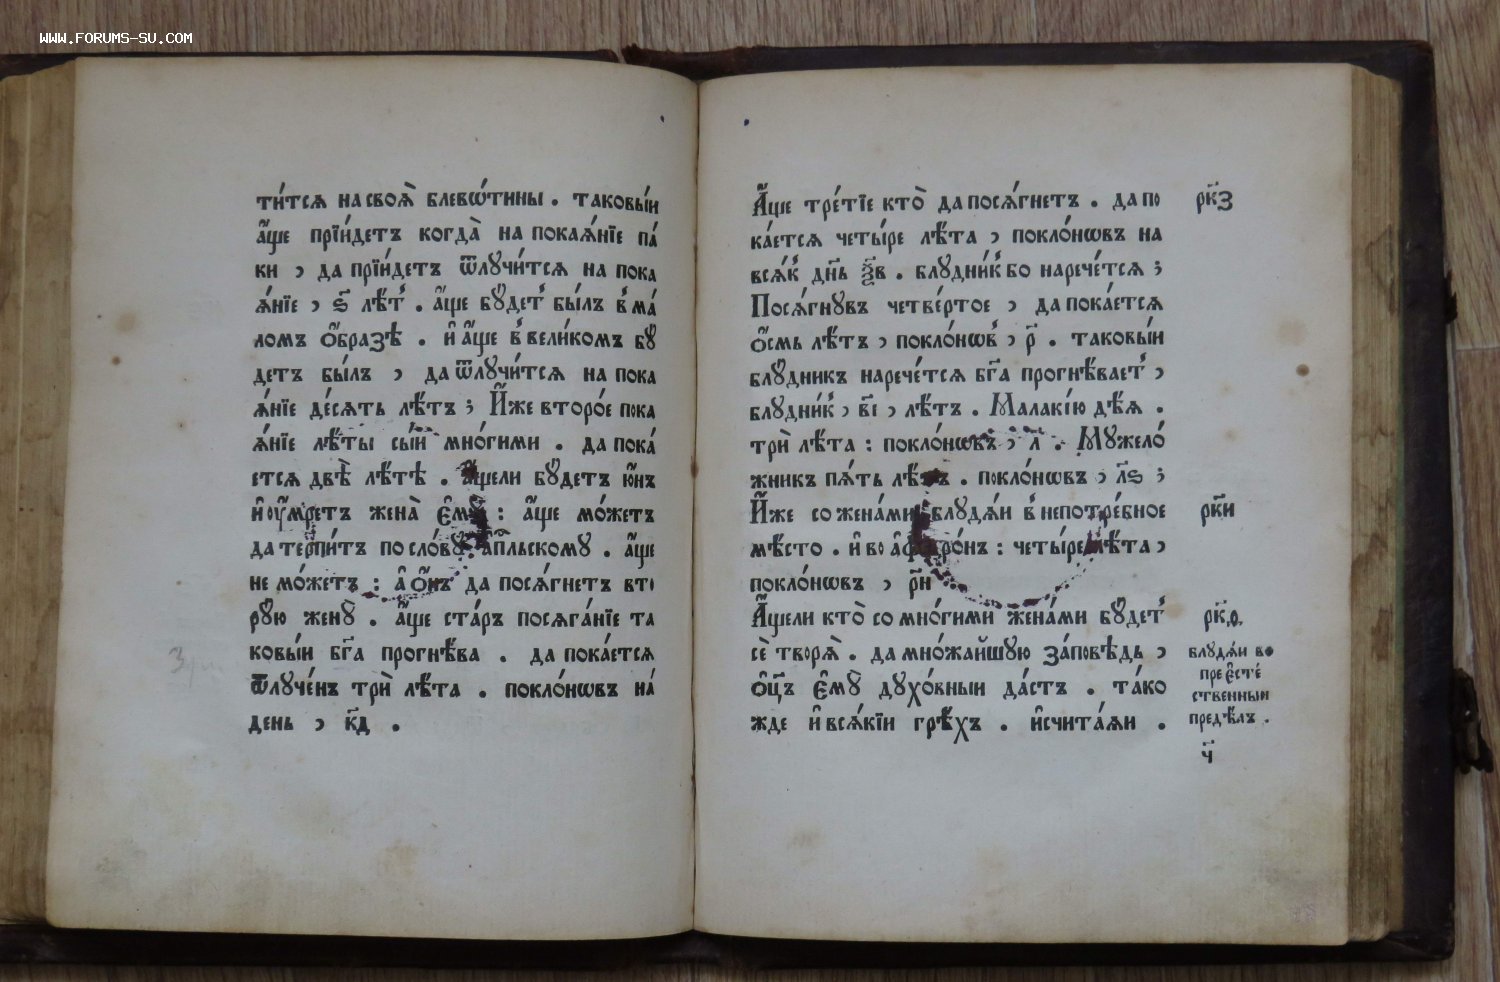 WWW.FORUMS-SU.COM
ти́тсѧ на своѧ̀ блевѡ́тины . таковы́и
а҆́ще прїи́детъ когда̀ на покаѧ́нїе па́
ки , да прїи́детъ ѿлꙋчи́тсѧ на пока
ѧ́нїе , ѕ҃ лѣ́т . а҆́ще бꙋ́дет бы́лъ в ма́
ломъ ѻ҆́бразѣ . и҆ а҆́ще в вели́комъ бꙋ́
детъ бы́лъ , да ѿлꙋчи́тсѧ на пока
ѧ́нїе де́сѧть лѣ́тъ ; И҆́же второ́е пока
ѧ́нїе лѣ́ты сы́й мно́гими . да пока́
етсѧ двѣ̀ лѣ́тѣ . а҆́щели бꙋ́детъ ю҆́нъ
и҆ ᲂу҆́мретъ жена̀ є҆мꙋ̀ : а҆́ще мо́жетъ
да терпи́тъ по сло́вꙋ а҆пⷭ҇льскомꙋ . а҆́ще
не мо́жетъ : а҆ ѻ҆́нъ да посѧ́гнетъ вто
рꙋ́ю женꙋ̀ . а҆́ще ста́ръ посѧга́нїе та
ковы́и бг҃а прогнѣ́ва . да пока́етсѧ
ѿлꙋче́нъ трѝ лѣ́та . покло́нѡвъ на́
день , к҃д .
А҆́ще тре́тїе кто̀ да посѧ́гнетъ . да по
ка́етсѧ четы́ре лѣ́та , покло́нѡвъ на
всѧ́к дн҃ь ѯ҃в . блꙋдни́к бо нарече́тсѧ ;
Посѧ́гнꙋвъ четве́ртое , да пока́етсѧ
ѻ҆́смь лѣ́тъ , покло́нѡв , р҃ . таковы́и
блꙋ́дникъ нарече́тсѧ бг҃а прогнѣ́вает ,
блꙋдни́к , в҃і , лѣ́тъ . Малакі́ю дѣ́ѧ .
трѝ лѣ́та : покло́нѡвъ , л҃ . Мꙋжело́
жникъ пѧ́ть лѣ́тъ . покло́нѡвъ , л҃ѕ ;
И҆́же со жена́ми блꙋдѧ́и в непотре́бное
мѣ́сто . и҆ во а҆федро́нъ : четы́ре лѣ́та ,
покло́нѡвъ , р҃н
А҆́щели кто̀ со мно́гими жена́ми бꙋ́дет
сѐ творѧ̀ . да мно́жайшꙋю за́повѣдь ,
ѻ҆ц҃ъ є҆мꙋ̀ дꙋхо́вныи да́стъ . та́ко
жде и҆ всѧ́кїи грѣ́хъ . и҆счита́ѧи .
рк҃з
рк҃и
рк҃ѳ.
блꙋдѧ́и во
пре є҆сте́
ственныи
предѣ́лъ .
ч҃